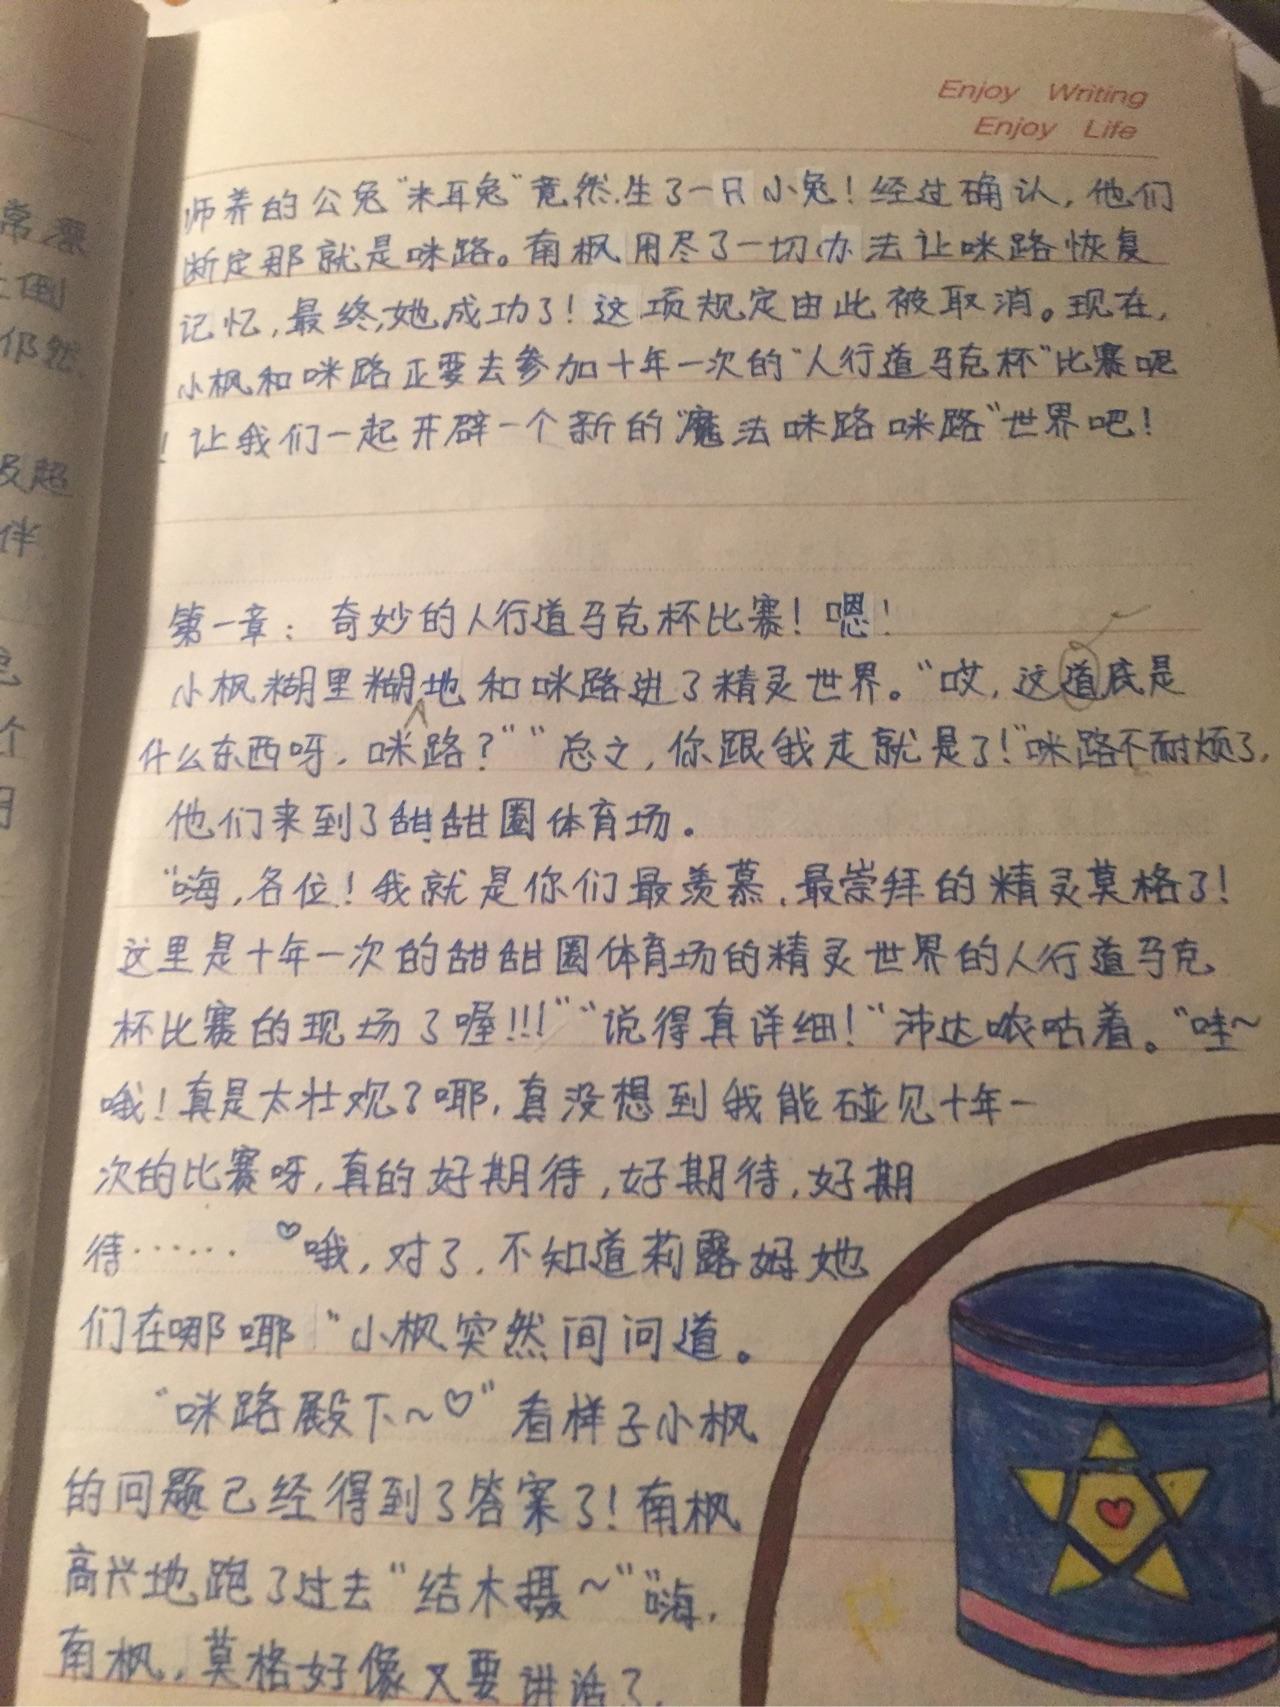 Enjoy Writing
Enjoy Life
常
倒
仍然
及超
伴
个
师养的公兔“米耳兔”竟然生了一只小兔！经过确认，他们
断定那就是咪路。南枫用尽了一切办法让咪路恢复
记忆，最终，她成功了！这项规定由此被取消。现在，
小枫和咪路正要去参加十年一次的“人行道马克杯”比赛呢
！让我们一起开辟一个新的“魔法咪路咪路”世界吧！
第一章：奇妙的人行道马克杯比赛！嗯！
小枫糊里糊地和咪路进了精灵世界。“哎，这道底是
什么东西呀，咪路？”“总之，你跟我走就是了！”咪路不耐烦了，
他们来到了甜甜圈体育场。
“嗨，各位！我就是你们最羡慕、最崇拜的精灵莫格了！
这里是十年一次的甜甜圈体育场的精灵世界的人行道马克
杯比赛的现场了喔!!!”“说得真详细！”沛达哝咕着。“哇~
哦！真是太壮观了耶，真没想到我能碰见十年一
次的比赛呀，真的好期待，好期待，好期
待…… ♡哦，对了，不知道莉露姆她
们在哪耶”小枫突然间问道。
“咪路殿下~♡”看样子小枫
的问题已经得到了答案了！南枫
高兴地跑了过去“结木摄~”“嗨，
南枫，莫格好像又要讲话了，